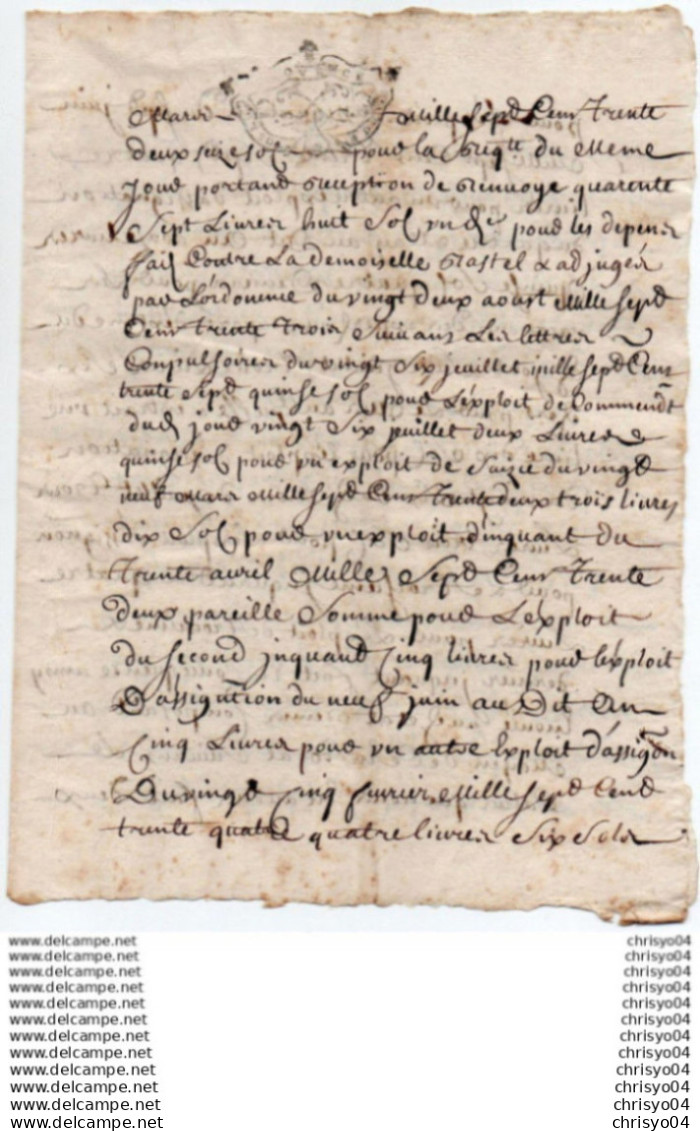 Mars Mille Sept Cens trente
deux seize sol pour la Reqte du meme
Jour portant Reception de Renvoye quarente
Sept Livres huit Sol un dr pour les depens
fait Contre La demoiselle & adjugés
par L'ordonnence du vingt deux aoust Mille sept
Cens trente trois Suivans Les lettres
Compulsoires du vingt Six jeuillet mille sept Cens
trente Sept quinse sol pour L'exploit de Commendt
dud jour vingt Six juillet deux Livres
quinse sol pour un exploit de Saizie du vingt
neuf Mars Mille sept Cens trente deux trois livres
dix Sol pour un exploit d'inquant du
trente avril Mille Sept Cens trente
deux pareille Somme pour L'exploit
du second jnquant Cinq livres pour l'exploit
D'assignation du neuf juin au Dit An
Cinq Livres pour un autre Exploit d'assigon
Du vingt Cinq fevrier Mille sept Cens
trente quatre quatre livres Six Sols
www.delcampe.net chrisyo04
www.delcampe.net chrisyo04
www.delcampe.net chrisyo04
www.delcampe.net chrisyo04
www.delcampe.net chrisyo04
www.delcampe.net chrisyo04
www.delcampe.net chrisyo04
www.delcampe.net chrisyo04
www.delcampe.net chrisyo04
www.delcampe.net chrisyo04
www.delcampe.net chrisyo04
www.delcampe.net chrisyo04